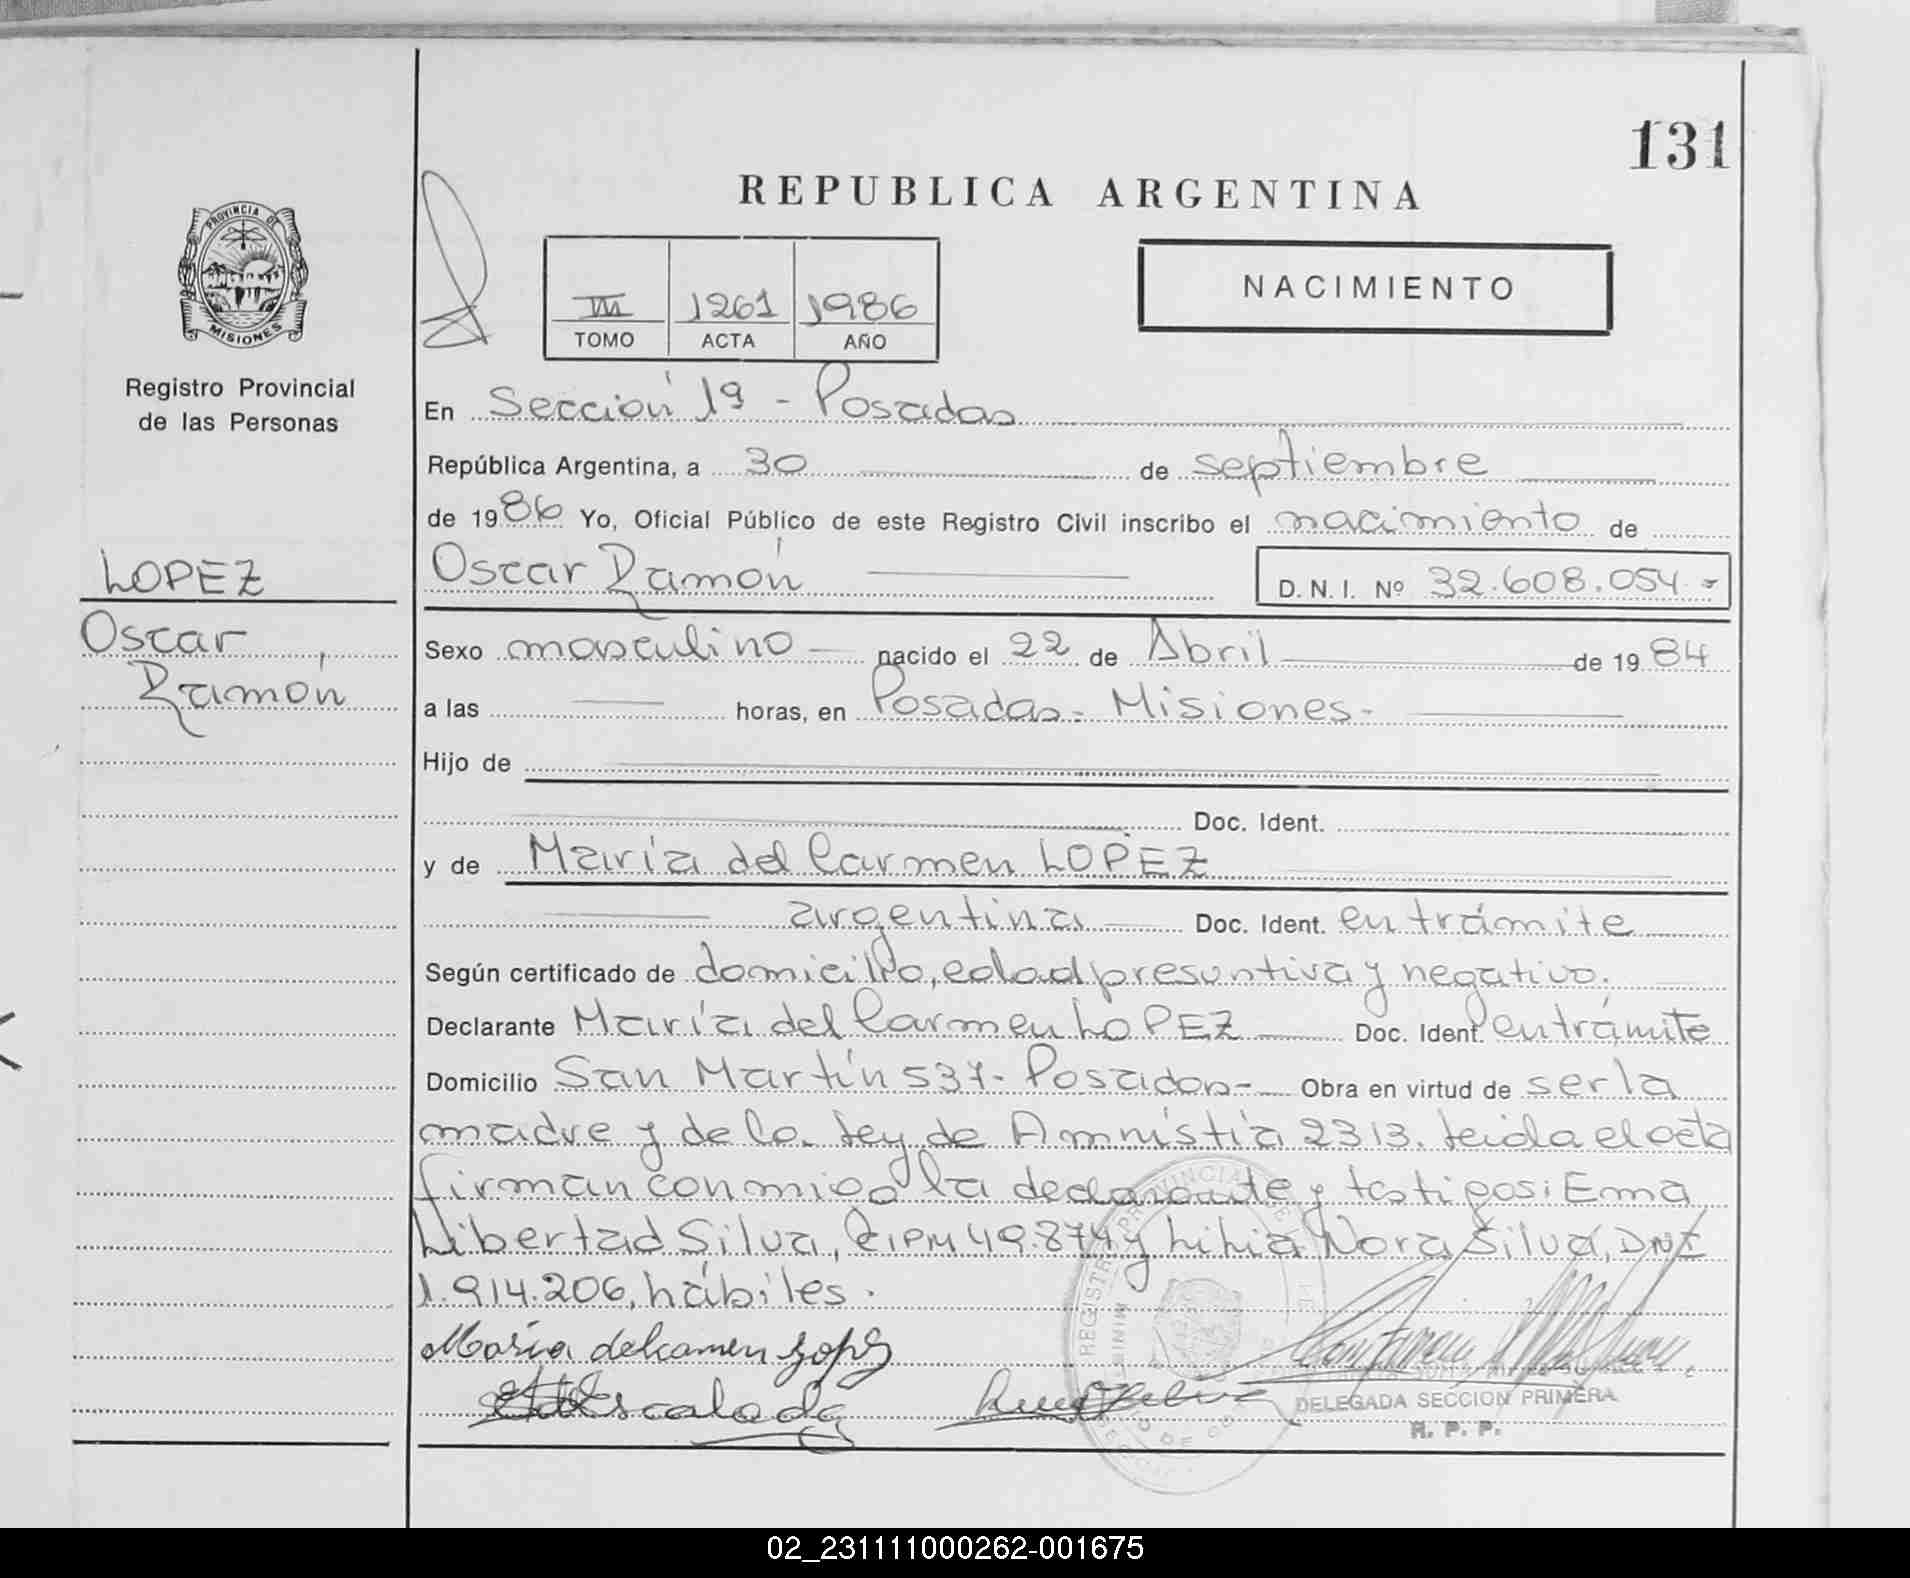 131
REPUBLICA ARGENTINA
PROVINCIA DE
MISIONES
Registro Provincial
de las Personas
III 1261 1986
TOMO ACTA AÑO
NACIMIENTO
En Sección 1ª - Posadas
República Argentina, a 30 de septiembre
de 1986 Yo, Oficial Público de este Registro Civil inscribo el nacimiento de
LOPEZ
Oscar Ramón
Oscar Ramón D.N.I. Nº 32.608.054.-
Sexo masculino nacido el 22 de Abril de 1984
a las horas, en Posadas - Misiones-
Hijo de
Doc. Ident.
y de María del Carmen LOPEZ
argentina Doc. Ident. en trámite
Según certificado de domicilio, edad presuntiva y negativo.
Declarante María del Carmen LOPEZ Doc. Ident. en trámite
Domicilio San Martín 537- Posadas- Obra en virtud de ser la
madre y de la Ley de Amnistía 2313. Leida el acta
firman conmigo la declarante y testigos: Ema
Libertad Silva, CIPM 49.874 y Lilia Nora Silva, DNI
1.914.206, hábiles.
Maria del carmen Lopez
DELEGADA SECCION PRIMERA
R. P. P.
02_231111000262-001675